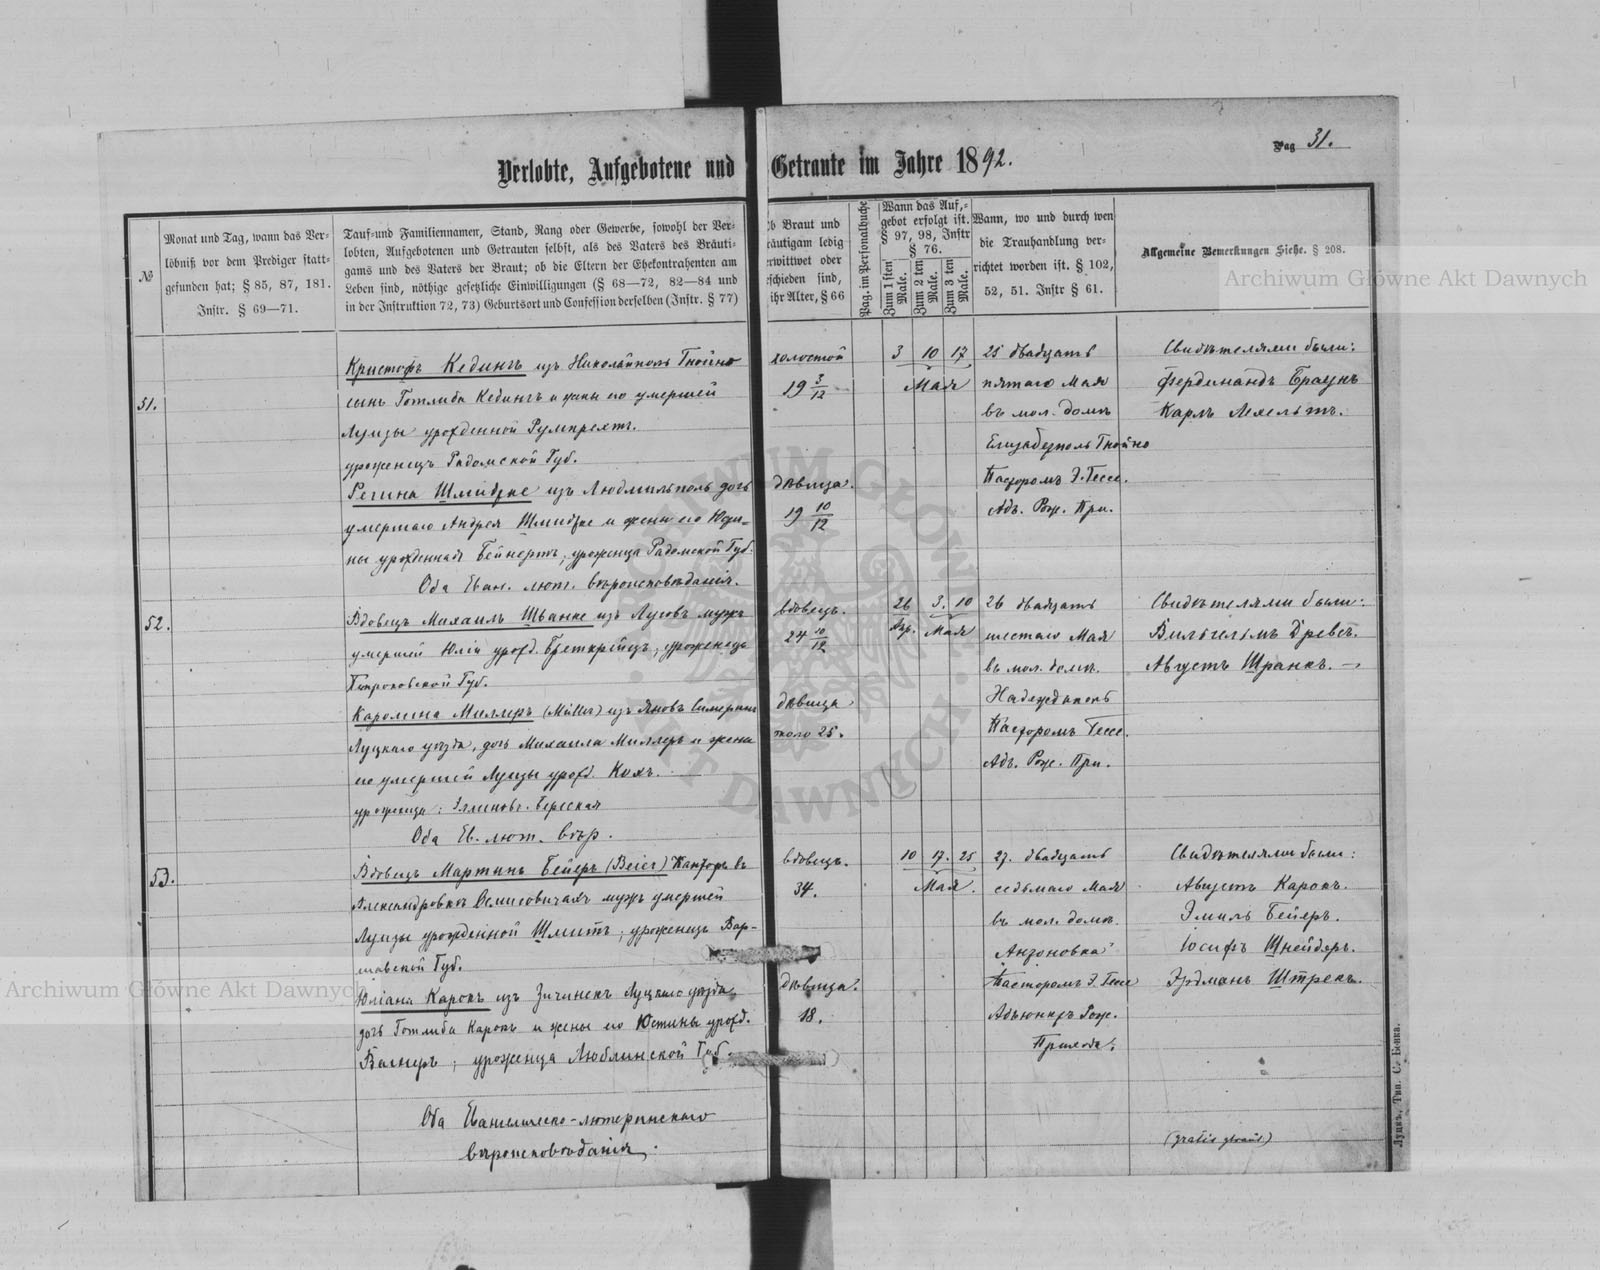 Pag 31.
Verlobte, Aufgebotene und Getraute im Jahre 1892.
№
Monat und Tag, wann das Ver-
löbniß vor dem Prediger statt-
gefunden hat; § 85, 87, 181.
Instr. § 69—71.
Tauf-und Familiennamen, Stand, Rang oder Gewerbe, sowohl der Ver-
lobten, Aufgebotenen und Getrauten selbst, als des Vaters des Bräuti-
gams und des Vaters der Braut; ob die Eltern der Ehekontrahenten am
Leben sind, nöthige gesetzliche Einwilligungen (§ 68—72, 82—84 und
in der Instruktion 72, 73) Geburtsort und Confession derselben (Instr. § 77)
b Braut und
äutigam ledig
erwittwet oder
schieden sind,
ihr Alter, § 66
Pag. im Personalbuche
Wann das Auf-
gebot erfolgt ist.
§ 97, 98, Instr
§ 76.
Zum 1sten Male.
Zum 2 ten Male.
Zum 3 ten Male.
Wann, wo und durch wen
die Trauhandlung ver-
richtet worden ist. § 102,
52, 51. Instr § 61.
Allgemeine Bemerkungen Siehe. § 208.
51.
Кристофъ Кедингъ изъ Николайполь Гнойно
сынъ Готлиба Кедингъ и жены его умершей
Луизы урожденной Румпрехтъ.
уроженецъ Радомской Губ.
Регина Шмидтке изъ Людмильполь дочь
умершаго Андрея Шмидтке и жены его
ны урожденной Бейнертъ, уроженца Радомской Губ.
Оба Еван. лют. вѣроисповѣданія.
холостой
19 3/12
дѣвица.
19 10/12
3 10 17
Мая
25 двадцать
пятаго Мая
въ мол. домѣ
Елизабетполь Гнойно
Пасторомъ Э. Гессе.
Адъ. Рож. При.
Свидѣтелями были:
Фердинандъ Браунъ
Карлъ Лехельтъ.
52.
Вдовецъ Михаилъ Шванке изъ Лусовъ мужъ
умершей Юлiи урожд. Бреткрейцъ, уроженецъ
Губ.
Каролина Миллеръ (Müller) изъ Яновъ
Луцкаго уѣзда, дочь Михаила Миллеръ и жены
его умершей Луизы урожд. Кохъ.
уроженца:
Оба Ев. лют. вѣр.
вдовецъ.
24 10/12
дѣвица
около 25.
26 3. 10
Апр. Мая
26 двадцать
шестаго Мая
въ мол. домѣ.
Пасторомъ Гессе.
Адъ. Рож. При.
Свидѣтелями были:
Вильгельмъ Древсъ.
Августъ Шранкъ. —
53.
Вдовецъ Мартинъ Бейеръ (Beier) Канторъ въ
Александровкѣ мужъ умершей
Луизы урожденной Шмитъ, уроженецъ Вар-
шавской Губ.
Юлiана Карокъ изъ Луцкаго уѣзда
дочь Готлиба Карокъ и жены его Юстины урожд.
Вагнеръ; уроженца Люблинской Губ.
Оба Евангелическо-лютеранскаго
вѣроисповѣданія.
вдовецъ.
34.
Дѣвица.
18.
10 17. 25
Мая.
27. двадцать
седьмаго Мая
въ мол. домѣ.
Антоновка
Пасторомъ Э. Гессе
Адъюнктъ Рож.
Прихода.
Свидѣтелями были:
Августъ Карокъ.
Эмиль Бейеръ.
Іосифъ Шнейдеръ.
Эрдманъ Штрекъ.
(gratis getraut.)
Луцкъ, Тип. С. Бонка.
Archiwum Główne Akt Dawnych
Archiwum Główne Akt Dawnych
ARCHIWUM GŁÓWNE AKT DAWNYCH